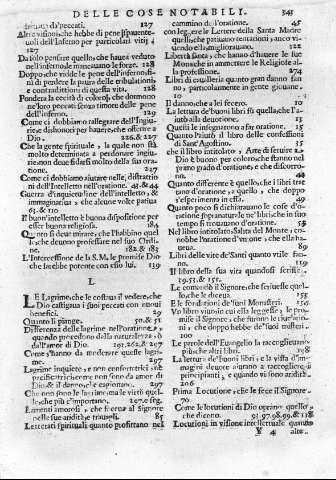 DELLE COSE NOTABILI. 345
dentati da' peccati. 127
Altre visioni, che hebbe di pene spauente-
uoli dell'Inferno per particolari vitij.
127
Da solo pensare quello, che haueua veduto
nell'Inferno le mancauano le forze. 128
Doppo, che vidde le pene dell'inferno, si
di perdere la paura delle tribulationi,
e contradittioni di questa vita. 128
Pondera la cecità di coloro, che dormono
ne' loro peccati senza timore delle pene
dell'inferno. 128
Come ci dobbiamo rallegrare dell'Ingiu-
rie, e dishonori per hauere, che offerire a
Dio. 226. & 227
Che la gente spirituale, la quale non stà
molto determinata a perdonare ingiu-
rie, non deue fidarsi molto della sua ora-
tione. 227
Come ci dobbiamo aiutare nelle, distratio
ni dell'Intelletto nell'oratione. 43. & 44
Guerra d'inquietudine dell'intelletto, &
immaginatiua, che alcune volte patiua
63. & 110
Il buon'intelletto è buona dispositione per
esser buona religiosa. 184
Quanto si deue mirare, che l'habbino quel
le, che deuono professare nel suo Ordi-
ne. 182. & 183
L'Intercessione de la S.M. le promise Dio
che sarebbe potente con esso lui. 139
L
LE Lagrime, che le costaua il vedere, che
Dio castigaua i suoi peccati con nuoui
benefici. 29
Quanto li piange. 50. & 51
Differenza delle lagrime nell'oratione,
quando procedono dalla naturalezza, ò
dall'amor di Dio. 191. 262. & 297
Come s'hanno da moderare queste lagri-
me. 297
Lagrime inquiete, e non confortatrici, nè
pacificatrici, che non sono da amor di
Dio & il danno, che cagionano. 297
Che non sono le lagrime, ma le virtù quel-
le, che più c'importano. 297. e seg.
Lamenti amorosi, che faceua al Signore
nelle sue aridità, e trauagli. 85
Letterati spirituali quanto profittano nel
cammino dell'oratione. 45
con leggere le Lettere della Santa Madre
quelli, che patiuano tentationi, anco vi-
uendo ella, migliorauano. 122
Libertà santa, che hanno d'hauere le sue
Monache in ammettere le Religiose al-
la professione. 274
Libri di caualleria quanto gran danno fan
no, particolarmente in gente giouane.
10
Il danno, che a lei fecero. 10
La lettura de' buoni libri fù quella, che l'a-
iutò alla deuotione. 15
Questi le insegnarono a fare oratione.
Quanto l'aiutò il libro delle confessioni
di Sant'Agostino. 53
Che il libro intitolato, Arte di seruire a
Dio è buono per coloro, che stanno nel
primo grado d'oratione, e che discorro-
no. 44
Quanto differente è quello, che i libri trat
tano d'oratione, a quello, che doppo
s'esperimenta in essa. 49
Quanto poco si dichiarino le cose d'o-
ratione soprannaturale ne' libri, che in suo
tempo si trouauano d'oratione. 52
Nel libro intitolato, Salita del Monte, co-
nobbe l'oratione d'vnione, che ella ha-
ueua. 89
Libri delle vite de' Santi quanto vtile fan-
no. 119
Il libro della sua vita quando si scrisse.
19. 53. & 151.
Le comandò il Signore, che scriuesse quel-
lo, che le diceua. 153
E le fondationi de' suoi Monasteri. 154.
Vn libro viuo, in cui ella leggesse, le pro-
mise il Signore, che furono le visioni,
che doppo hebbe de' suoi misteri.
100
Le parole dell'Euangelio la raccoglieuano
più, che altri libri. 198
La lettura de' buoni libri, e la vista d'im-
magini deuote aiutano a raccogliersi i
principianti, e quando vi sono aridità.
206
Prima Locutione, che le fece il Signore
70
Come le locutioni di Dio operano quello,
che dicono. 91. 97. 98. 99. & 118
Locutioni in visione intellettuale quanto
Y 4 alte.